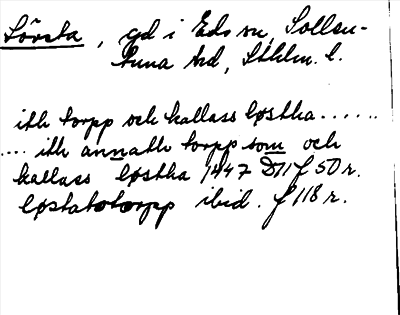 Lövsta, gd i Eds sn, Sollen-
tuna hd, Sthlm. l.
itt torpp och kallass løstha ......
.... itt annatt torpp som och
kallass løstha 1447 D11 f 50 r.
løstatotorpp ibid. f 118 r.